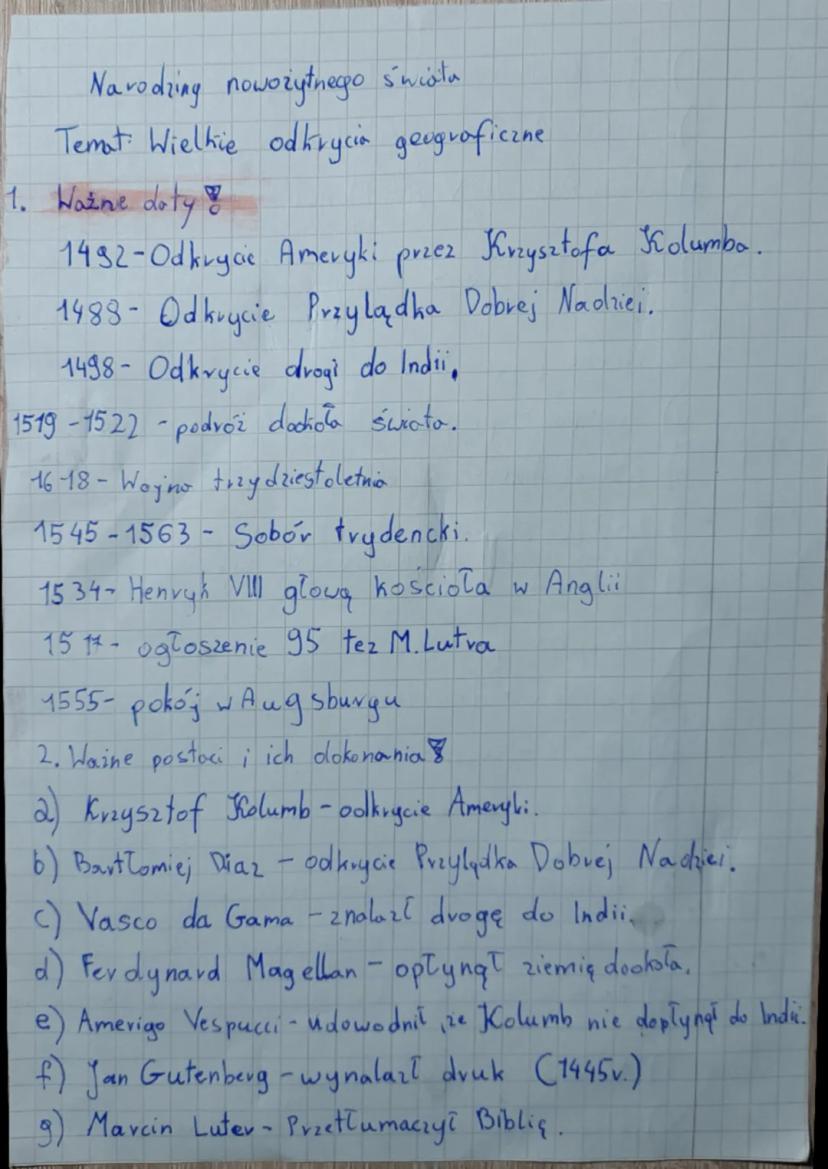 Narodziny nowożytnego świata
Temat: Wielkie odkrycia geograficzne
1. Ważne daty!
1492-Odkrycie Ameryki przez Krzysztofa Kolumba.
1488- Odkrycie Przylądka Dobrej Nadziei.
1498- Odkrycie drogi do Indii.
1519-1522 - podróż dookoła świata.
1618- Wojna trzydziestoletnia
1545-1563- Sobór trydencki.
1534- Henryk VIII głową kościoła w Anglii
1517- ogłoszenie 95 tez M.Lutra
1555- pokój w Augsburgu
2. Ważne postaci i ich dokonania!
a) Krzysztof Kolumb - odkrycie Ameryki.
b) Bartłomiej Diaz - odkrycie Przylądka Dobrej Nadziei.
c) Vasco da Gama - znalazł drogę do Indii.
d) Ferdynard Magellan - opłynął ziemię dookoła.
e) Amerigo Vespucci - udowodnił, że Kolumb nie dopłynął do Indii.
f) Jan Gutenberg - wynalazł druk (1445r.)
g) Marcin Luter - Przetłumaczył Biblię.